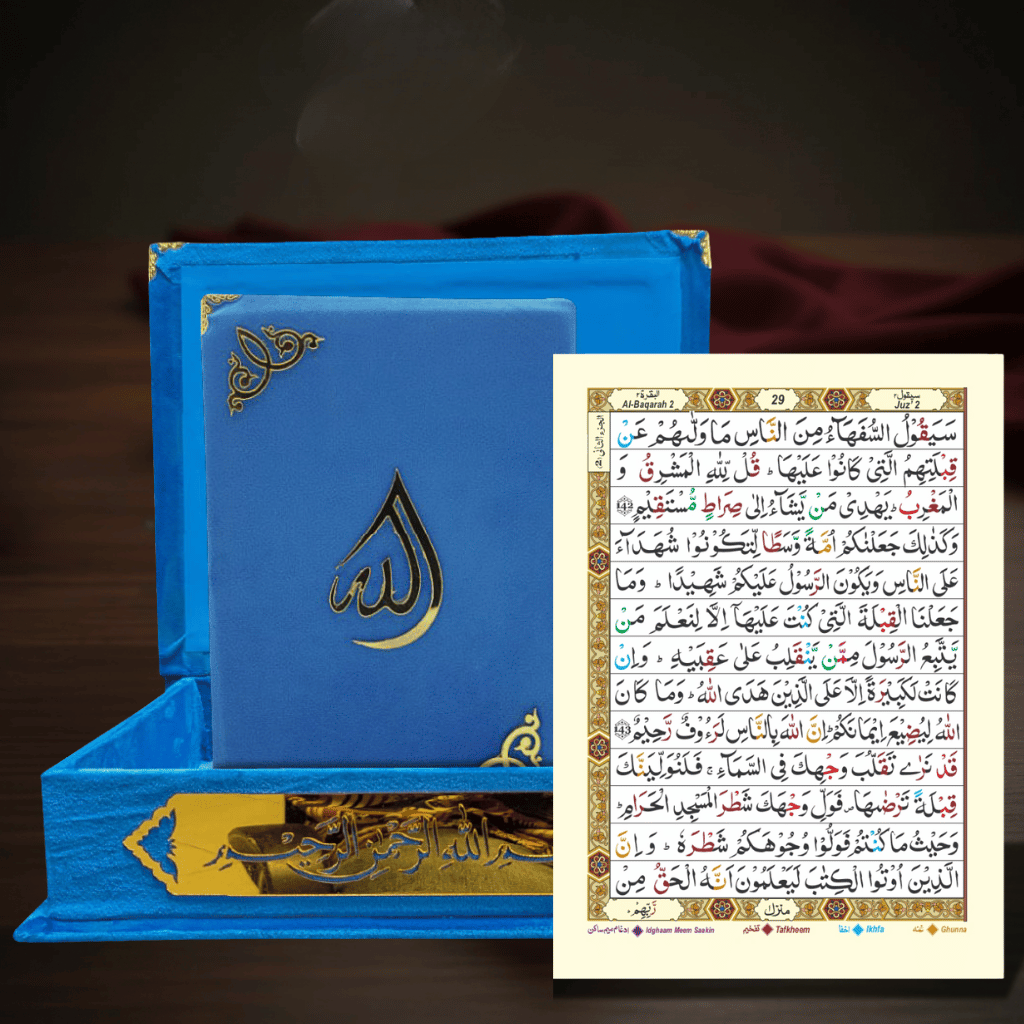 الله
بسم الله الرحمن الرحيم
البقرة ٢
Al-Baqarah 2
29
سيقول ٢
Juz' 2
سَيَقُوْلُ السُّفَهَآءُ مِنَ النَّاسِ مَا وَلّٰىهُمْ عَنْ
قِبْلَتِهِمُ الَّتِیْ كَانُوْا عَلَيْهَا ؕ قُلْ لِّلّٰهِ الْمَشْرِقُ وَ
الْمَغْرِبُ ؕ يَهْدِیْ مَنْ يَّشَآءُ اِلٰی صِرَاطٍ مُّسْتَقِيْمٍ 142
وَكَذٰلِكَ جَعَلْنٰكُمْ اُمَّةً وَّسَطًا لِّتَكُوْنُوْا شُهَدَآءَ
عَلَی النَّاسِ وَيَكُوْنَ الرَّسُوْلُ عَلَيْكُمْ شَهِيْدًا ؕ وَمَا
جَعَلْنَا الْقِبْلَةَ الَّتِیْ كُنْتَ عَلَيْهَاۤ اِلَّا لِنَعْلَمَ مَنْ
يَّتَّبِعُ الرَّسُوْلَ مِمَّنْ يَّنْقَلِبُ عَلٰی عَقِبَيْهِ ؕ وَاِنْ
كَانَتْ لَكَبِيْرَةً اِلَّا عَلَی الَّذِيْنَ هَدَی اللّٰهُ ؕ وَمَا كَانَ
اللّٰهُ لِيُضِيْعَ اِيْمَانَكُمْ ؕ اِنَّ اللّٰهَ بِالنَّاسِ لَرَءُوْفٌ رَّحِيْمٌ 143
قَدْ نَرٰی تَقَلُّبَ وَجْهِكَ فِی السَّمَآءِ ۚ فَلَنُوَلِّيَنَّكَ
قِبْلَةً تَرْضٰىهَا ۪ فَوَلِّ وَجْهَكَ شَطْرَ الْمَسْجِدِ الْحَرَامِ ؕ
وَحَيْثُ مَا كُنْتُمْ فَوَلُّوْا وُجُوْهَكُمْ شَطْرَهٗ ؕ وَاِنَّ
الَّذِيْنَ اُوْتُوا الْكِتٰبَ لَيَعْلَمُوْنَ اَنَّهُ الْحَقُّ مِنْ
رَّبِّهِمْ
منزل
ادغام میم ساکن Idghaam Meem Saakin
تفخیم Tafkheem
اخفا Ikhfa
غنہ Ghunna